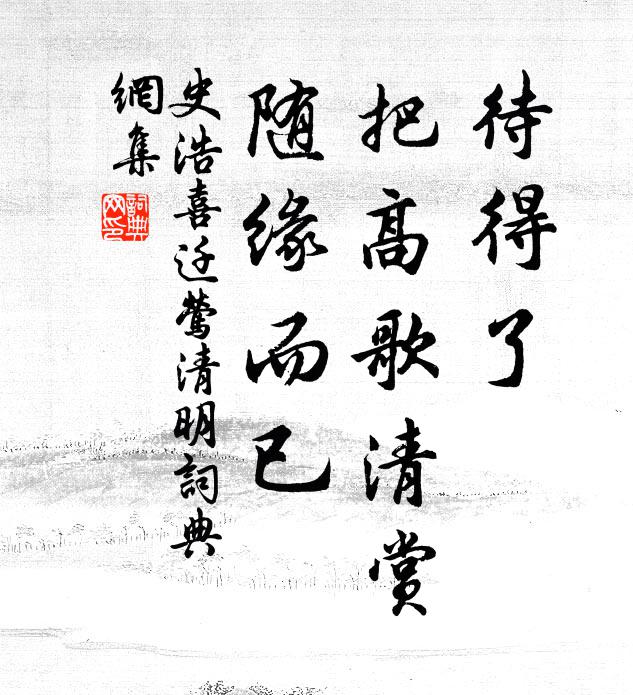 待得了
把高歌清赏
随缘而已
史浩喜迁莺清明詞典
網集
詞典
网印